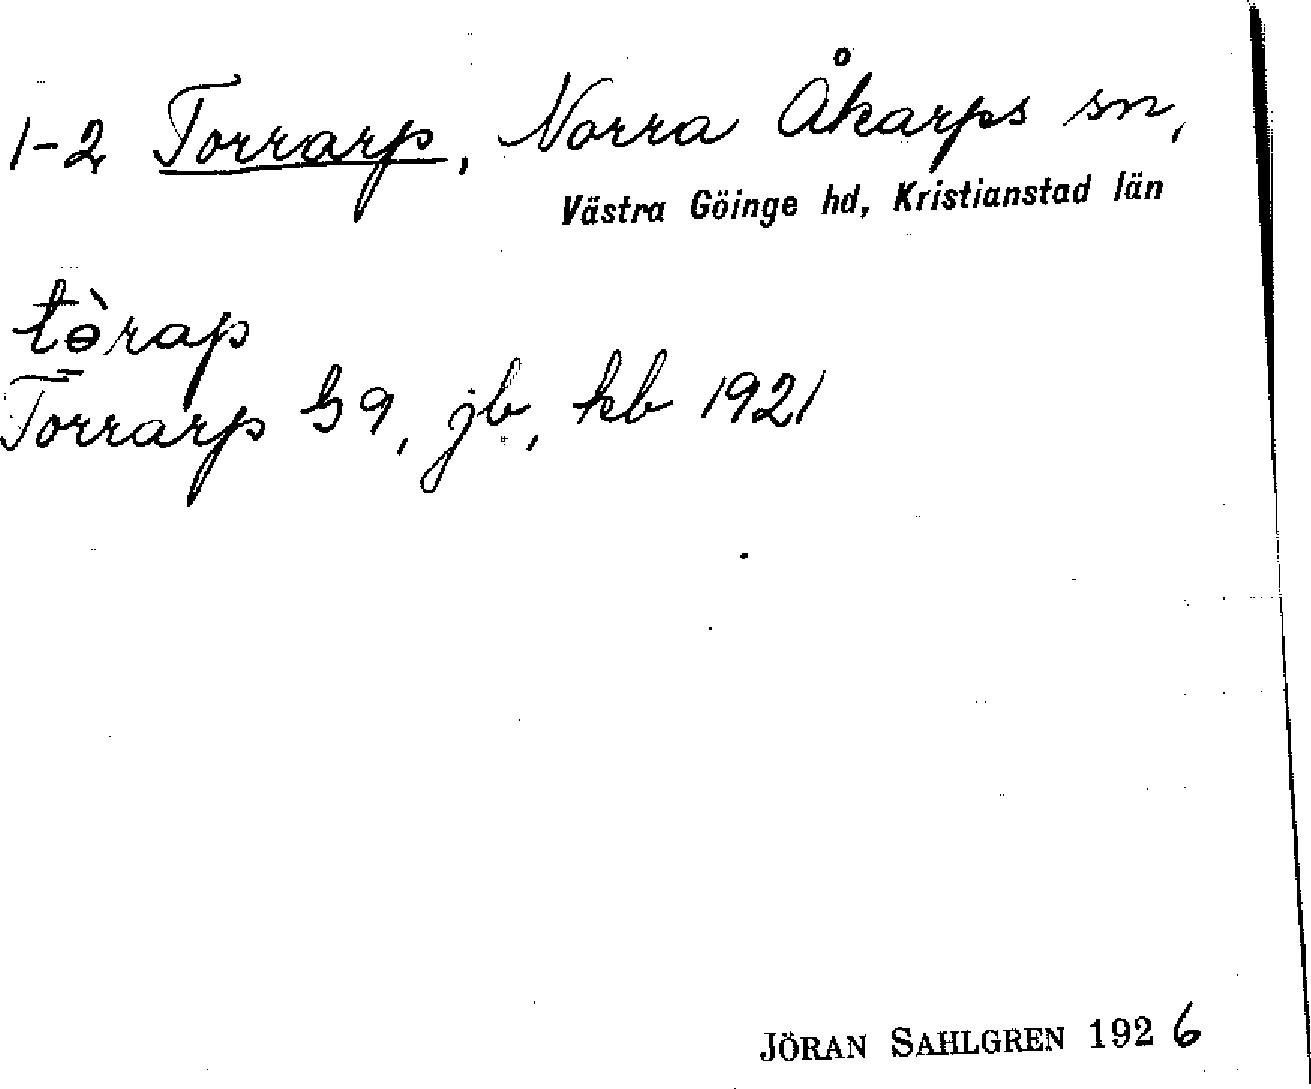 1-2 Torrarp, Norra Åkarps sn,
Västra Göinge hd, Kristianstad län
tèrap
Torrarp G9, jb, kb 1921
JÖRAN SAHLGREN 1926